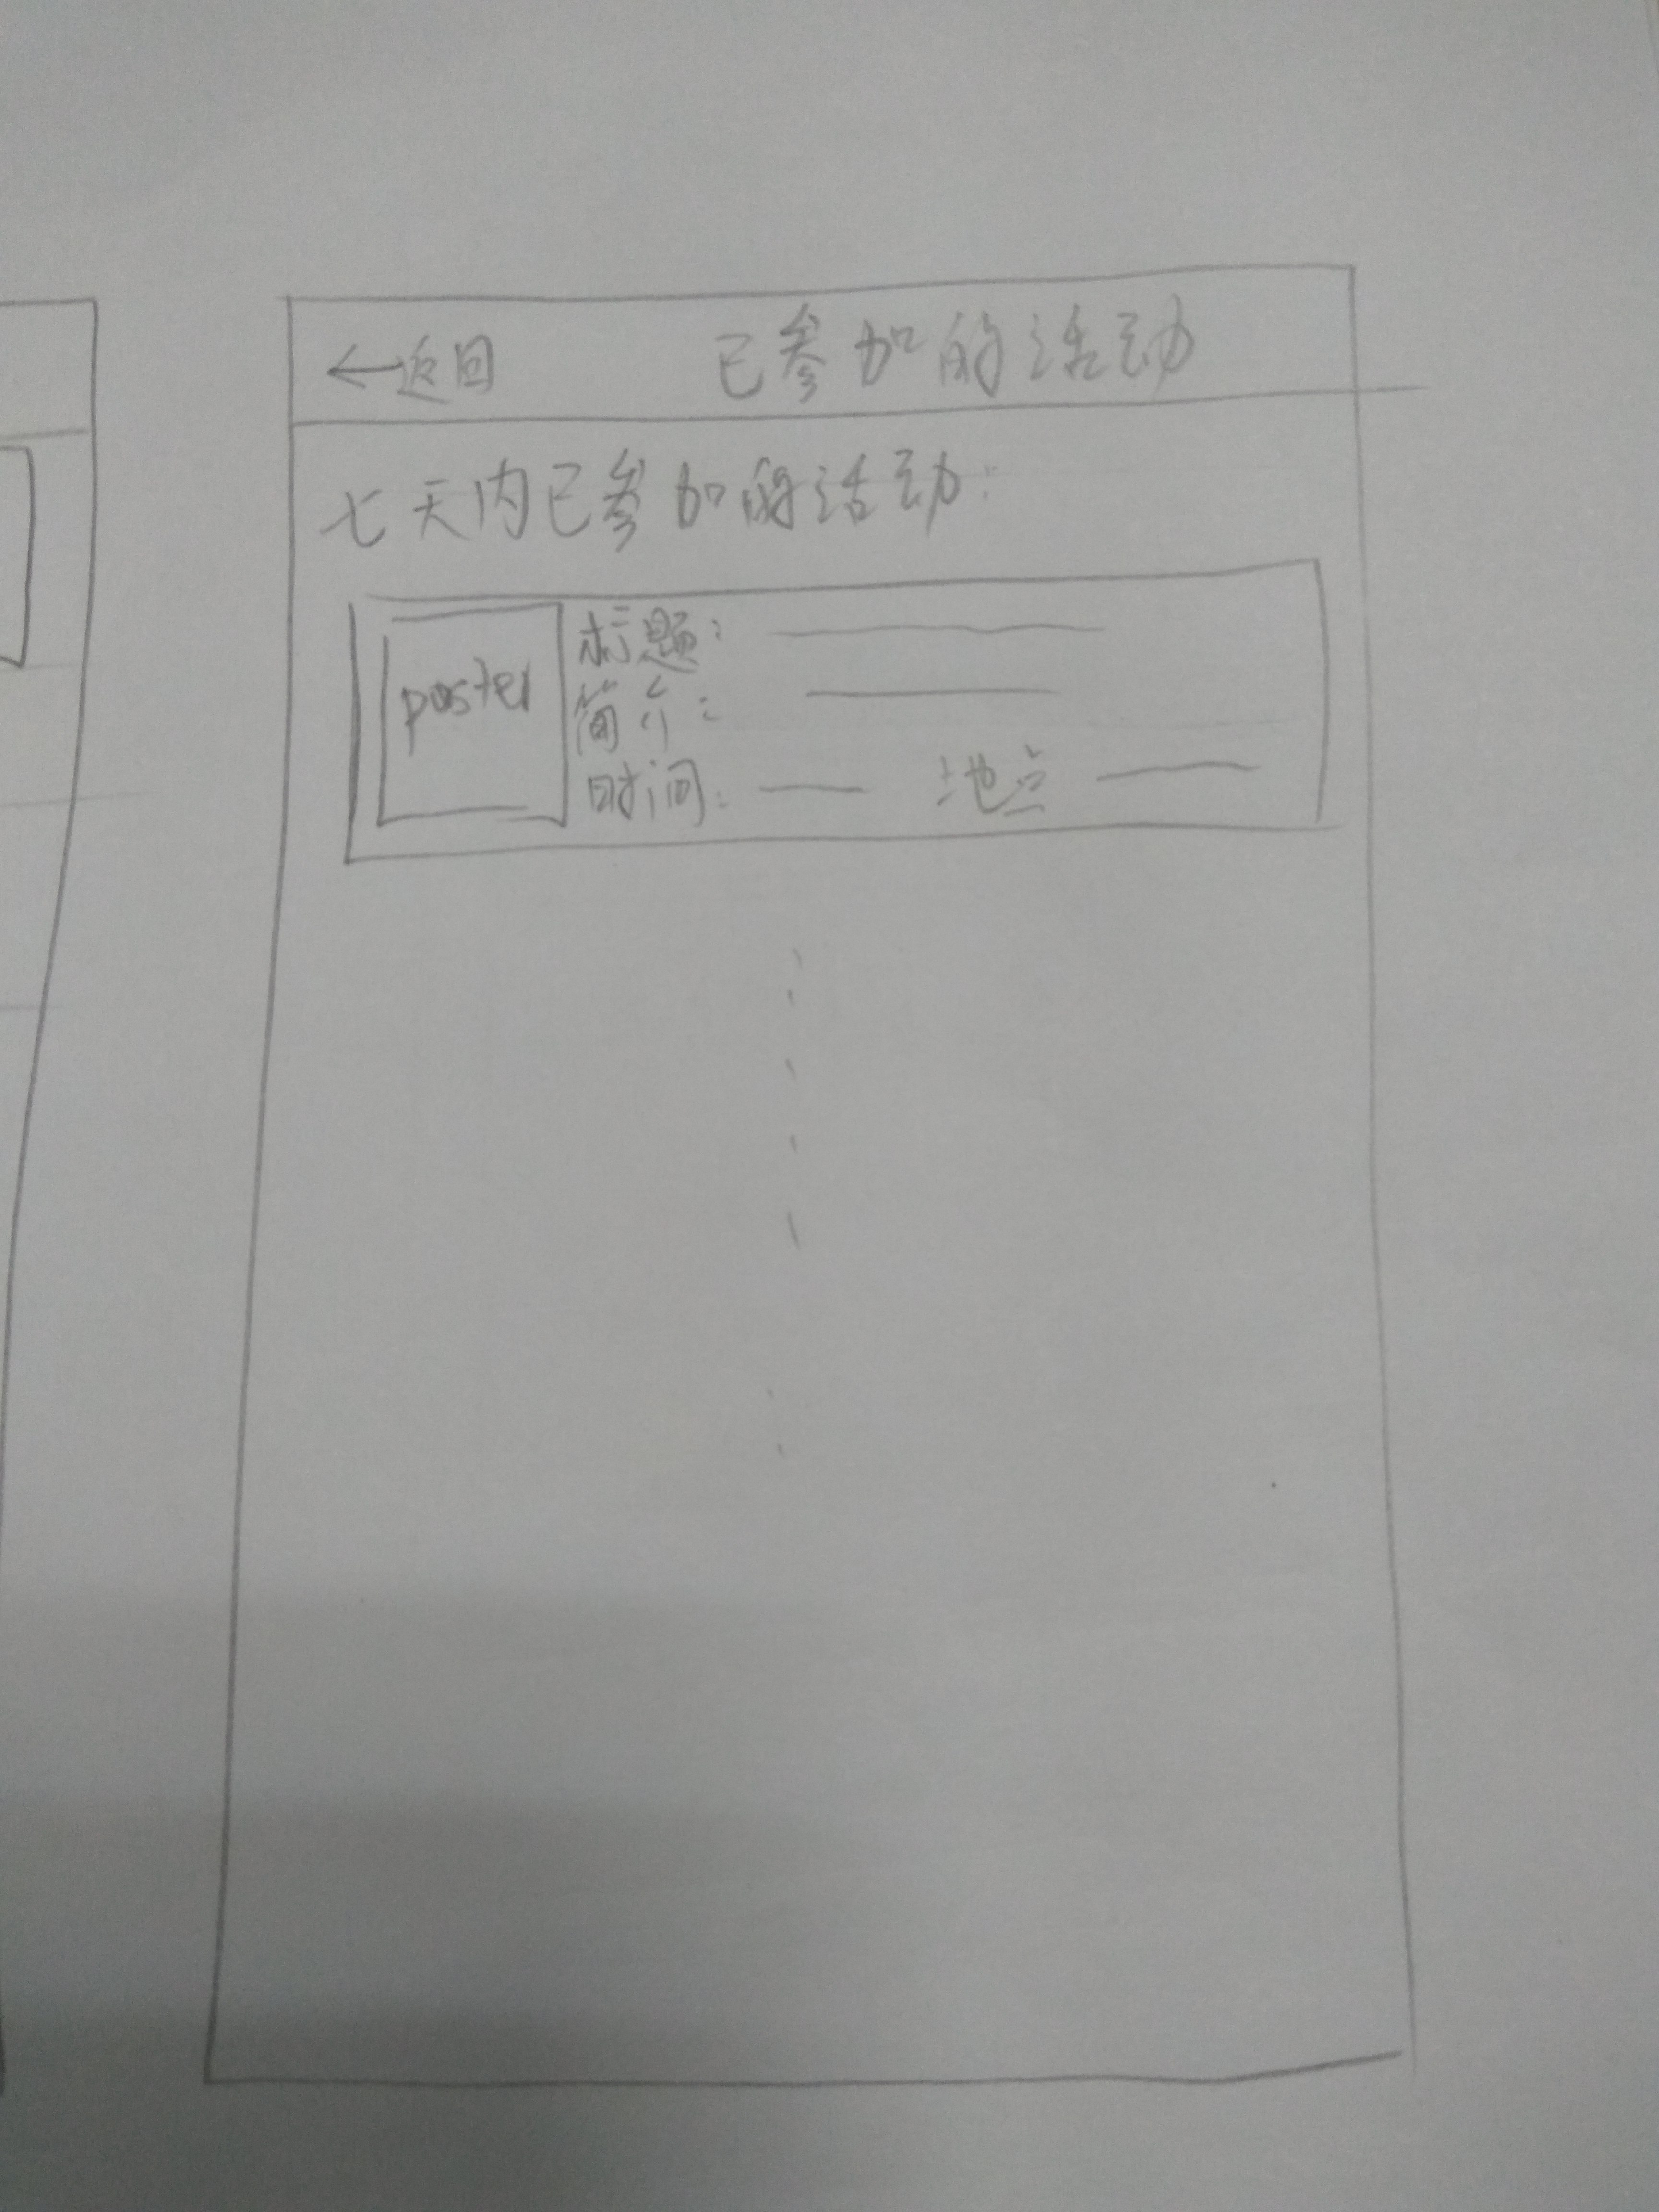 ←返回 已参加的活动
七天内已参加的活动:
poster
标题:
简介:
时间: 地点